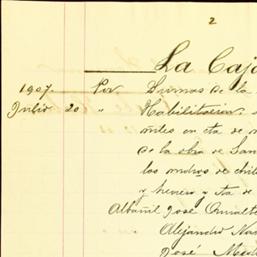 2
La Caja
1907. Por Sumas de la
Julio 20 " Habilitacion,
en cta de
de la obra de San
los muros de
y herrero y cta de
Albañil José
Alejandro
José